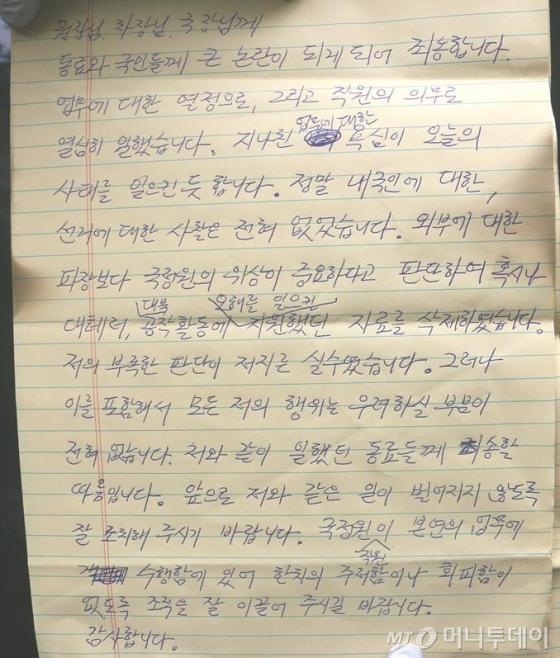 원장님, 차장님, 국장님께
동료와 국민들께 큰 논란이 되게 되어 죄송합니다.
업무에 대한 열정으로, 그리고 직원의 의무로
열심히 일했습니다. 지나친 업무에 대한 욕심이 오늘의
사태를 일으킨 듯 합니다. 정말 내국인에 대한,
선거에 대한 사찰은 전혀 없었습니다. 외부에 대한
파장보다 국정원의 위상이 중요하다고 판단하여 혹시나
대테러, 대북 공작활동에 오해를 일으킨 지원했던 자료를 삭제하였습니다.
저의 부족한 판단이 저지른 실수였습니다. 그러나
이를 포함해서 모든 저의 행위는 우려하실 부분이
전혀 없습니다. 저와 같이 일했던 동료들께 죄송할
따름입니다. 앞으로 저와 같은 일이 벌어지지 않도록
잘 조치해 주시기 바랍니다. 국정원 직원이 본연의 업무에
수행함에 있어 한치의 주저함이나 회피함이
없도록 조직을 잘 이끌어 주시길 바랍니다.
감사합니다.
MT 머니투데이